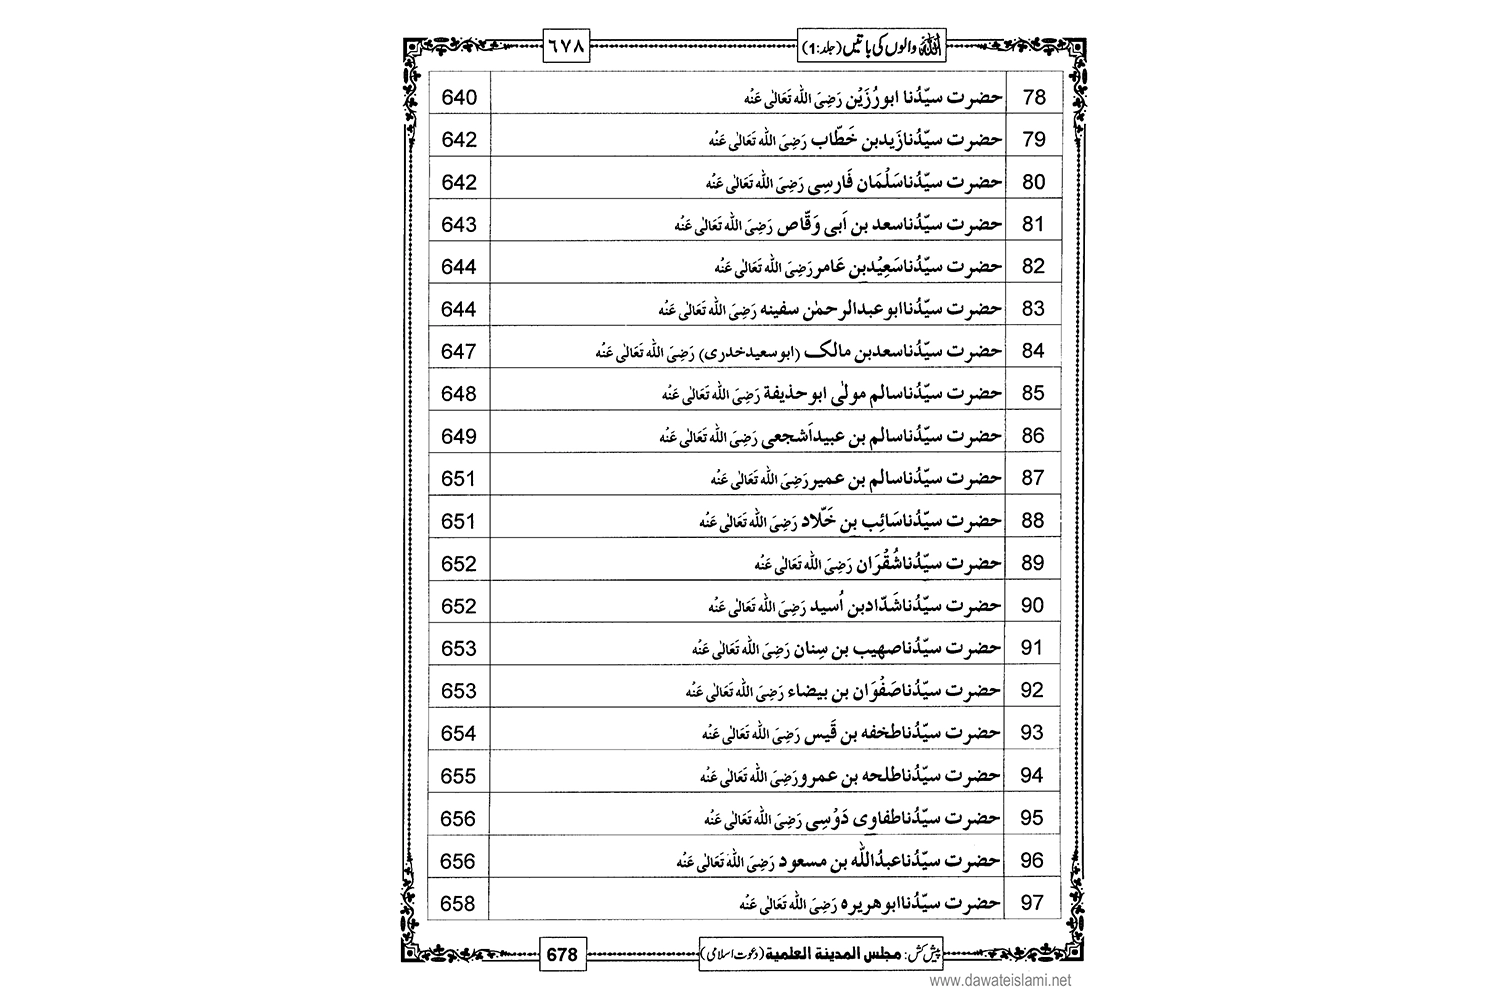 اللہ والوں کی باتیں (جلد:1) ٦٧٨
78 حضرت سیّدُنا ابورُزَیْن رَضِیَ اللہ تَعَالٰی عَنْہ 640
79 حضرت سیّدُنازَیدبن خَطّاب رَضِیَ اللہ تَعَالٰی عَنْہ 642
80 حضرت سیّدُناسَلْمَان فَارِسِی رَضِیَ اللہ تَعَالٰی عَنْہ 642
81 حضرت سیّدُناسعد بن اَبی وَقّاص رَضِیَ اللہ تَعَالٰی عَنْہ 643
82 حضرت سیّدُناسَعِیْدبن عَامر رَضِیَ اللہ تَعَالٰی عَنْہ 644
83 حضرت سیّدُناابوعبدالرحمٰن سفینہ رَضِیَ اللہ تَعَالٰی عَنْہ 644
84 حضرت سیّدُناسعدبن مالک (ابوسعیدخدری) رَضِیَ اللہ تَعَالٰی عَنْہ 647
85 حضرت سیّدُناسالم مولٰی ابوحذیفة رَضِیَ اللہ تَعَالٰی عَنْہ 648
86 حضرت سیّدُناسالم بن عبیداَشجعی رَضِیَ اللہ تَعَالٰی عَنْہ 649
87 حضرت سیّدُناسالم بن عمیر رَضِیَ اللہ تَعَالٰی عَنْہ 651
88 حضرت سیّدُناسَائِب بن خَلّاد رَضِیَ اللہ تَعَالٰی عَنْہ 651
89 حضرت سیّدُناشُقْرَان رَضِیَ اللہ تَعَالٰی عَنْہ 652
90 حضرت سیّدُناشَدّادبن اُسید رَضِیَ اللہ تَعَالٰی عَنْہ 652
91 حضرت سیّدُناصہیب بن سِنان رَضِیَ اللہ تَعَالٰی عَنْہ 653
92 حضرت سیّدُناصَفْوَان بن بیضاء رَضِیَ اللہ تَعَالٰی عَنْہ 653
93 حضرت سیّدُناطخفہ بن قَیس رَضِیَ اللہ تَعَالٰی عَنْہ 654
94 حضرت سیّدُناطلحہ بن عمرو رَضِیَ اللہ تَعَالٰی عَنْہ 655
95 حضرت سیّدُناطفاوِی دَوْسِی رَضِیَ اللہ تَعَالٰی عَنْہ 656
96 حضرت سیّدُناعبدُاللّٰہ بن مسعود رَضِیَ اللہ تَعَالٰی عَنْہ 656
97 حضرت سیّدُناابوھریرہ رَضِیَ اللہ تَعَالٰی عَنْہ 658
پیش کش: مجلس المدینة العلمیة (دعوت اسلامی) 678
www.dawateislami.net